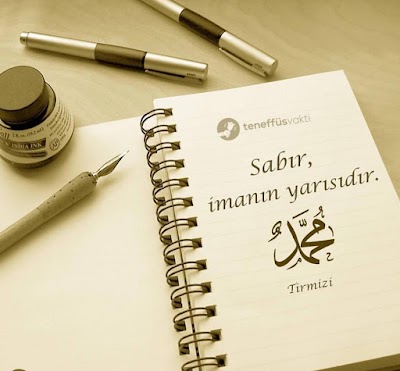 teneffüsvakti
Sabır,
imanın yarısıdır.
مُحَمَّد
Tirmizi
INDIA INK